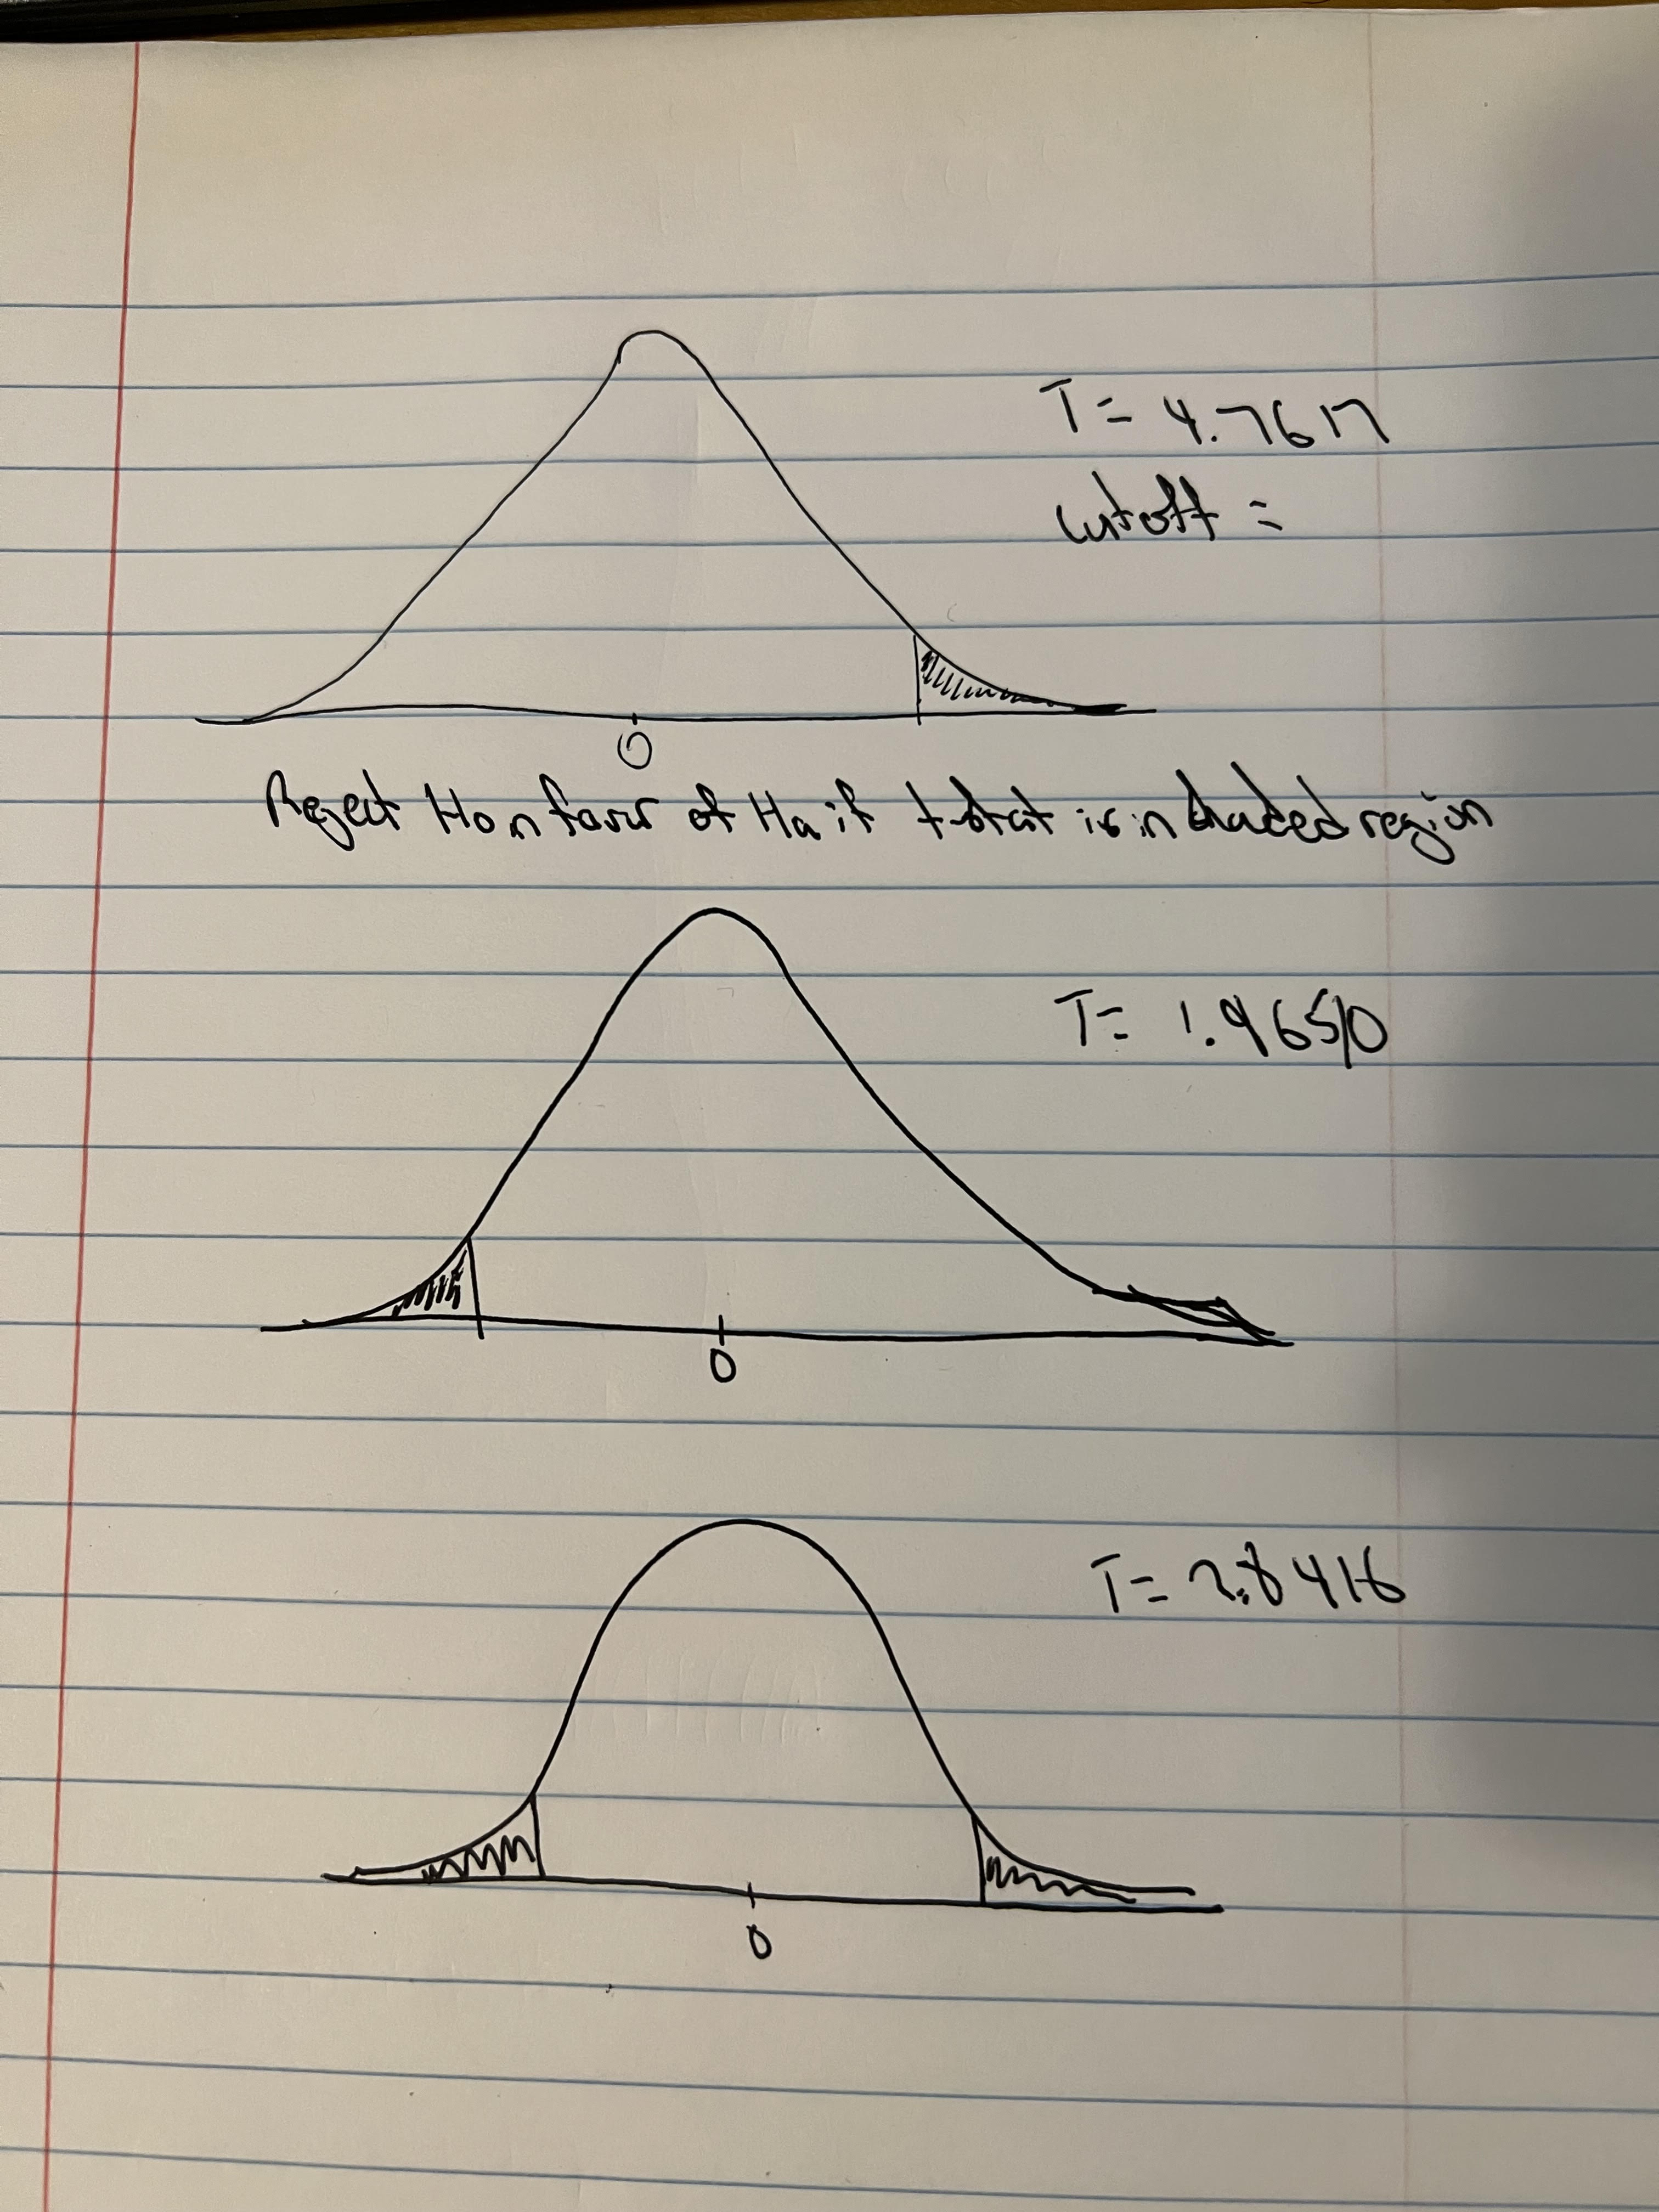 T = 4.7617
cutoff =
0
Reject Ho in favor of Ha if t-stat is in shaded region
T = 1.96510
0
T = 2.8416
0